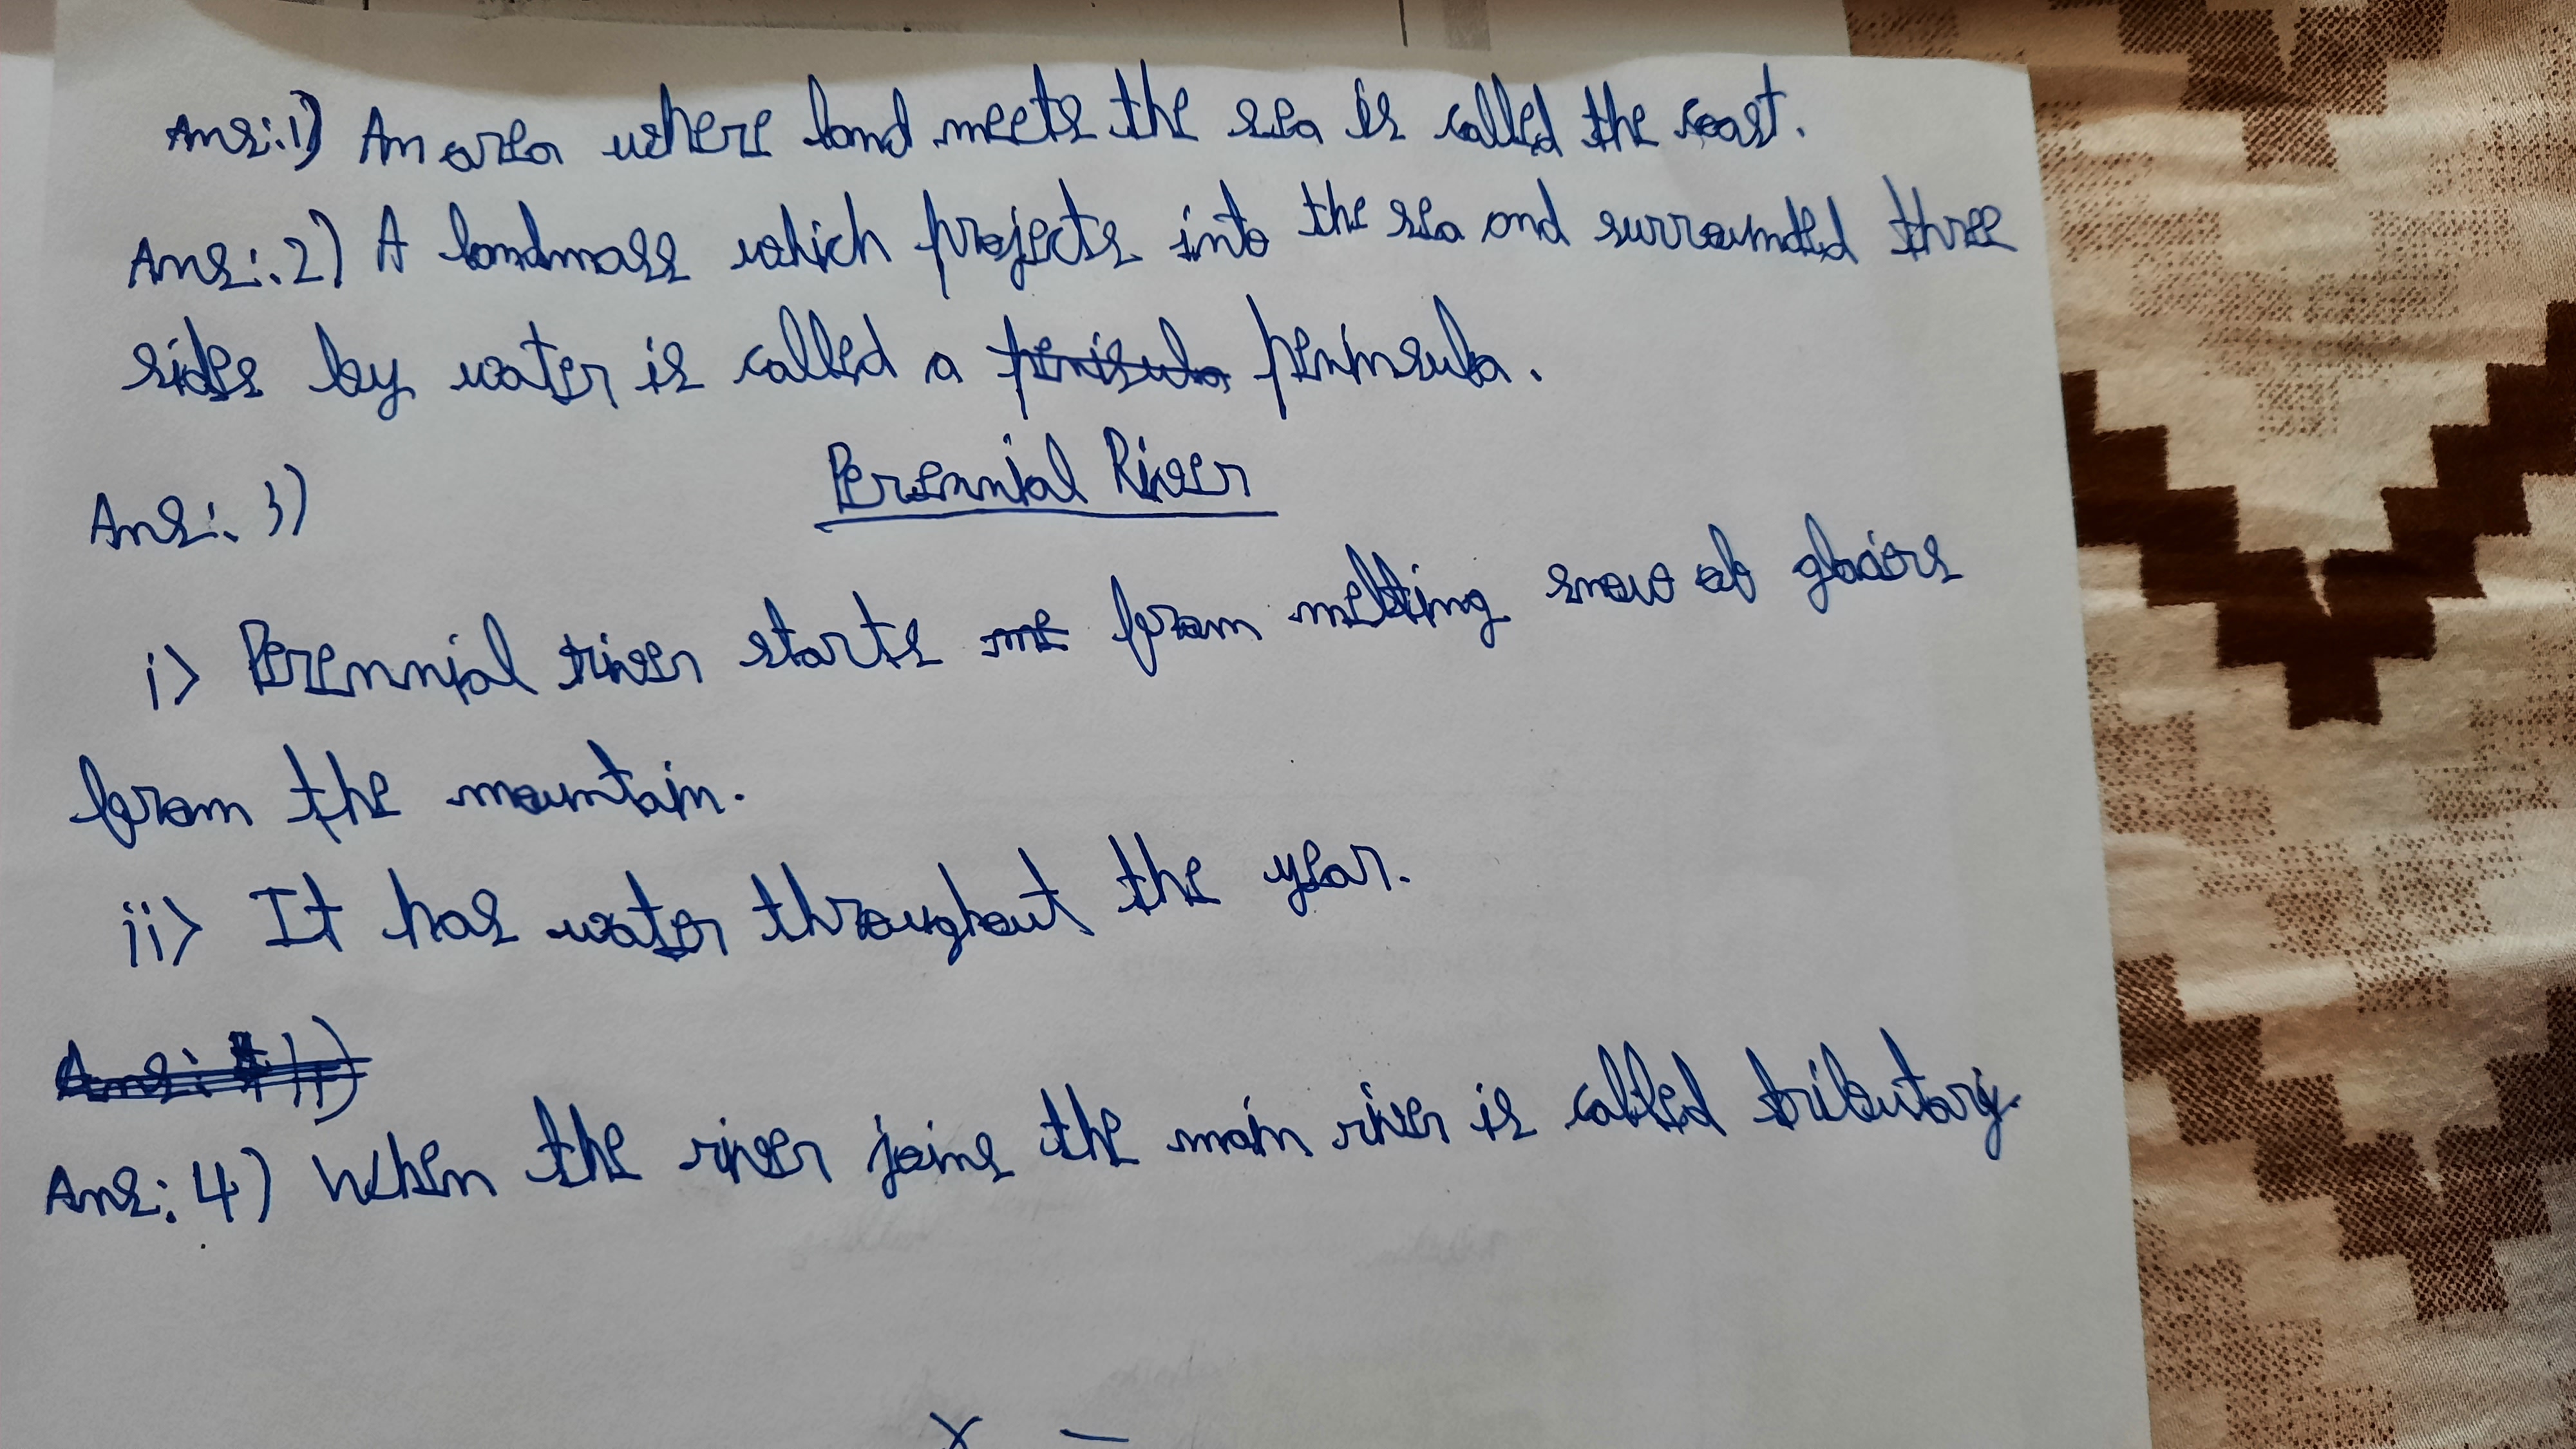 Ans:1) An area where land meets the sea is called the coast.
Ans:.2) A landmass which projects into the sea and surrounded three
sides by water is called a penisula peninsula.
Perennial River
Ans:. 3)
i> Perennial river starts me from melting snow of glaciors
from the mountain.
ii> It has water throughout the year.
Ans: 4)
Ans:. 4) When the river joins the main river is called tributary.
x —